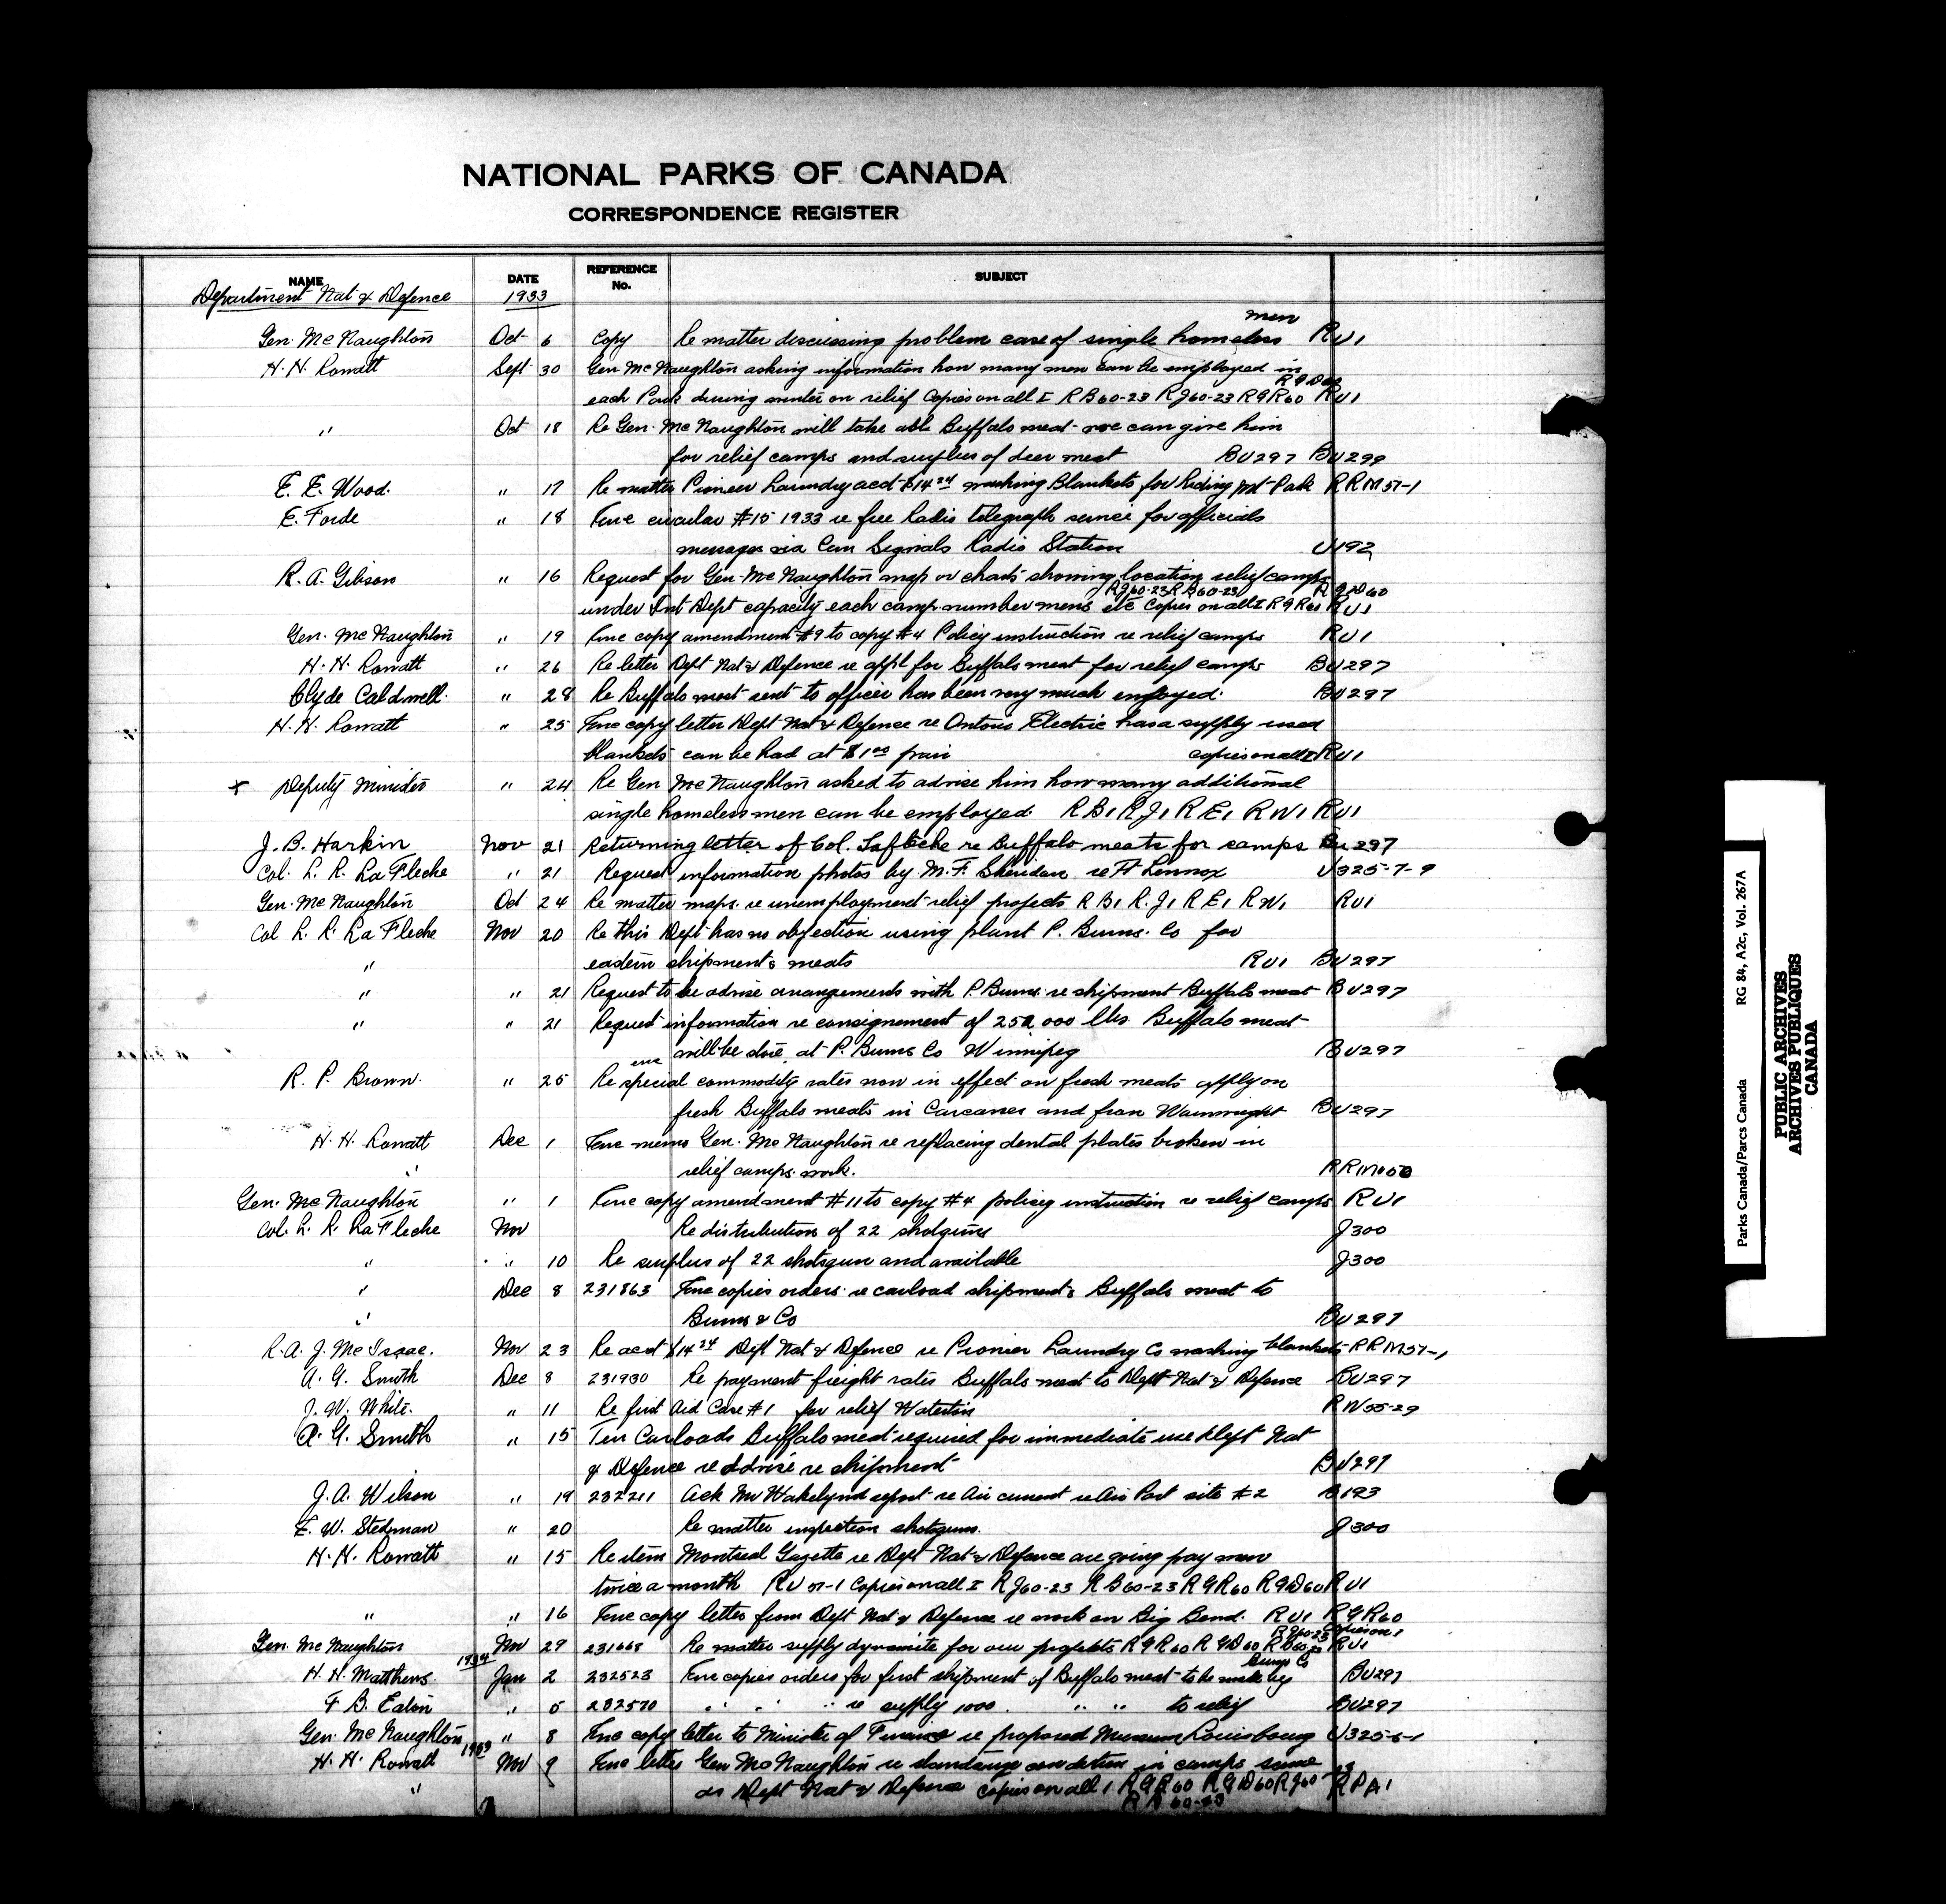 NATIONAL PARKS OF CANADA
CORRESPONDENCE REGISTER
NAME DATE REFERENCE No. SUBJECT
Department Nat & Defence 1933
men
Gen. McNaughton Oct 6 Copy Re matter discussing problem care of single homeless RU1
H. H. Rowatt Sept 30 Gen McNaughton asking information how many men can be employed in
R G D 60
each Park during winter on relief Copies on all I RB60-23 RJ60-23 RGR60 RU1
" Oct 18 Re Gen. McNaughton will take able Buffalo meat we can give him
for relief camps and surplus of deer meat BU297 BU299
E. E. Wood. " 17 Re matter Pioneer Laundry acct $14 24 washing Blankets for Riding Mt Park RRM57-1
E. Forde " 18 Enc circular #15 1933 re free Radio telegraph service for officials
messages via Can Signals Radio Station U192
R. A. Gibson " 16 Request for Gen McNaughton map or charts showing location relief camps
RJ60-23 RB60-23 RGD60
under Int Dept capacity each camp number mens etc Copies on all I RGR60 RU1
Gen. McNaughton " 19 Enc copy amendment #9 to copy #4 Policy instruction re relief camps RU1
H. H. Rowatt " 26 Re letter Dept Nat & Defence re appl for Buffalo meat for relief camps BU297
Clyde Caldwell. " 28 Re Buffalo meat sent to officer has been very much enjoyed. BU297
H. H. Rowatt " 25 Enc copy letter Dept Nat & Defence re Ontario Electric has a supply used
blankets can be had at $1 00 pair copies on all I RU1
x Deputy Minister " 24 Re Gen McNaughton asked to advise him how many additional
single homeless men can be employed RB1 RJ1 RE1 RW1 RU1
J. B. Harkin Nov 21 Returning letter of Col. Lafleche re Buffalo meats for camps Bu 297
Col. L. R. LaFleche " 21 Request information photos by M. F. Sheridan re Ft Lennox U325-7-9
Gen. McNaughton Oct 24 Re matter maps re unemployment relief projects RB1 RJ1 RE1 RW1 RU1
Col L. R. LaFleche Nov 20 Re this Dept has no objection using plant P. Burns. Co for
" eastern shipments meats RU1 BU297
" " 21 Request to be advise arrangements with P. Burns re shipment Buffalo meat BU297
" " 21 Request information re consignement of 252,000 lbs. Buffalo meat
will be store at P. Burns Co Winnipeg BU297
R. P. Brown. " 25 Re special commodity rates now in effect on fresh meats apply on
fresh Buffalo meats in Carcasses and from Wainwright BU297
H. H. Rowatt Dec 1 Enc memo Gen. McNaughton re replacing dental plates broken in
" relief camps work. RRM60
Gen. McNaughton " 1 Enc copy amendment #11 to copy #4 policy instruction re relief camps RU1
Col. L. R. LaFleche Nov Re distribution of 22 shotguns J300
" " 10 Re surplus of 22 shotgun and available J300
" Dec 8 231863 Enc copies orders re carload shipments Buffalo meat to
" Burns & Co BU297
R. A. J. McIsaac. Nov 23 Re acct $14 24 Dept Nat & Defence re Pionier Laundry Co washing blankets RRM57-1
A. G. Smith Dec 8 231930 Re payment freight rates Buffalo meat to Dept Nat & Defence BU297
J. W. White. " 11 Re first Aid Case #1 for relief Waterton RW55-29
A. G. Smith " 15 Ten Carloads Buffalo meat required for immediate use Dept Nat
& Defence re advise re shipment BU297
J. A. Wilson " 19 232211 Ack Mr Wakelynd report re Air current re Air Port site #2 B193
E. W. Stedman " 20 Re matter inspection shotguns. J300
H. H. Rowatt " 15 Re item Montreal Gazette re Dept Nat & Defence are going pay men
twice a month RU 51-1 Copies on all I RJ60-23 RB60-23 RGR60 RGD60 RU1
" " 16 Enc copy letter from Dept Nat & Defence re work on Big Bend. RU1 RGR60
RJ60-23 Copies on 1
Gen. McNaughton Nov 29 231668 Re matter supply dynamite for our projects RGR60 RGD60 RB60-23 RU1
1934 Burns Co
H. H. Matthews. Jan 2 232523 Enc copies orders for first shipment of Buffalo meat to be made by BU297
F B. Eaton " 5 232570 " " " re supply 1000 " " to relief BU297
Gen. McNaughton " 8 Enc copy letter to Minister of Finance re proposed Museum Louisbourg U325-6-1
1933
H. H. Rowatt Nov 9 Enc letter Gen McNaughton re condition in camps same
" as Dept Nat & Defence copies on all 1 RGR60 RGD60 RJ60 RPA1
RB 60-23
Parks Canada/Parcs Canada RG 84, A2c, Vol. 267A
PUBLIC ARCHIVES
ARCHIVES PUBLIQUES
CANADA